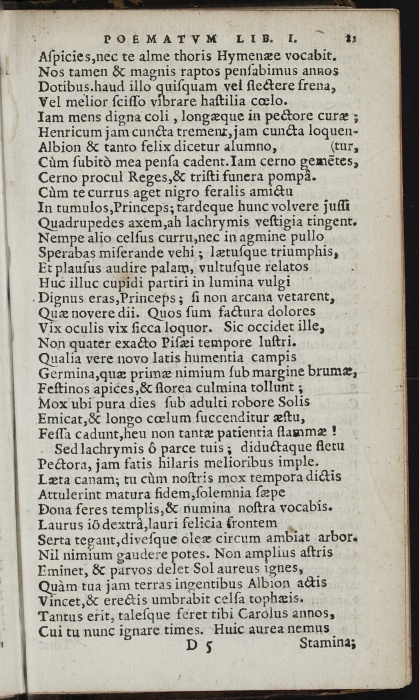 POEMATVM LIB. I. 81
Aſpicies,nec te alme thoris Hymenæe vocabit.
Nos tamen & magnis raptos penſabimus annos
Dotibus.haud illo quiſquam vel flectere frena,
Vel melior ſciſſo vibrare haſtilia cœlo.
Iam mens digna coli , longæque in pectore curæ ;
Henricum jam cuncta tremunt,jam cuncta loquen-
Albion & tanto felix dicetur alumno, (tur,
Cùm ſubitò mea penſa cadent.Iam cerno gemētes,
Cerno procul Reges,& triſti funera pompâ.
Cùm te currus aget nigro feralis amictu
In tumulos,Princeps; tardeque hunc volvere juſſi
Quadrupedes axem,ah lachrymis veſtigia tingent.
Nempe alio celſus curru,nec in agmine pullo
Sperabas miſerande vehi ; lætuſque triumphis,
Et plauſus audire palam, vultuſque relatos
Huc illuc cupidi partiri in lumina vulgi
Dignus eras,Princeps ; ſi non arcana vetarent,
Quæ novere dii. Quos ſum factura dolores
Vix oculis vix ſicca loquor. Sic occidet ille,
Non quater exacto Piſæi tempore luſtri.
Qualia vere novo latis humentia campis
Germina,quæ primæ nimium ſub margine brumæ,
Feſtinos apices,& florea culmina tollunt ;
Mox ubi pura dies ſub adulti robore Solis
Emicat,& longo cœlum ſuccenditur æſtu,
Feſſa cadunt,heu non tantæ patientia flammæ !
Sed lachrymis ô parce tuis ; diductaque fletu
Pectora, jam fatis hilaris melioribus imple.
Læta canam; tu cùm noſtris mox tempora dictis
Attulerint matura fidem,ſolemnia ſæpe
Dona feres templis,& numina noſtra vocabis.
Laurus iö dextrâ,lauri felicia frontem
Serta tegant,diveſque oleæ circum ambiat arbor.
Nil nimium gaudere potes. Non amplius aſtris
Eminet, & parvos delet Sol aureus ignes,
Quàm tua jam terras ingentibus Albion actis
Vincet,& erectis umbrabit celſa tophæis.
Tantus erit, taleſque feret tibi Carolus annos,
Cui tu nunc ignare times. Huic aurea nemus
D 5 Stamina;